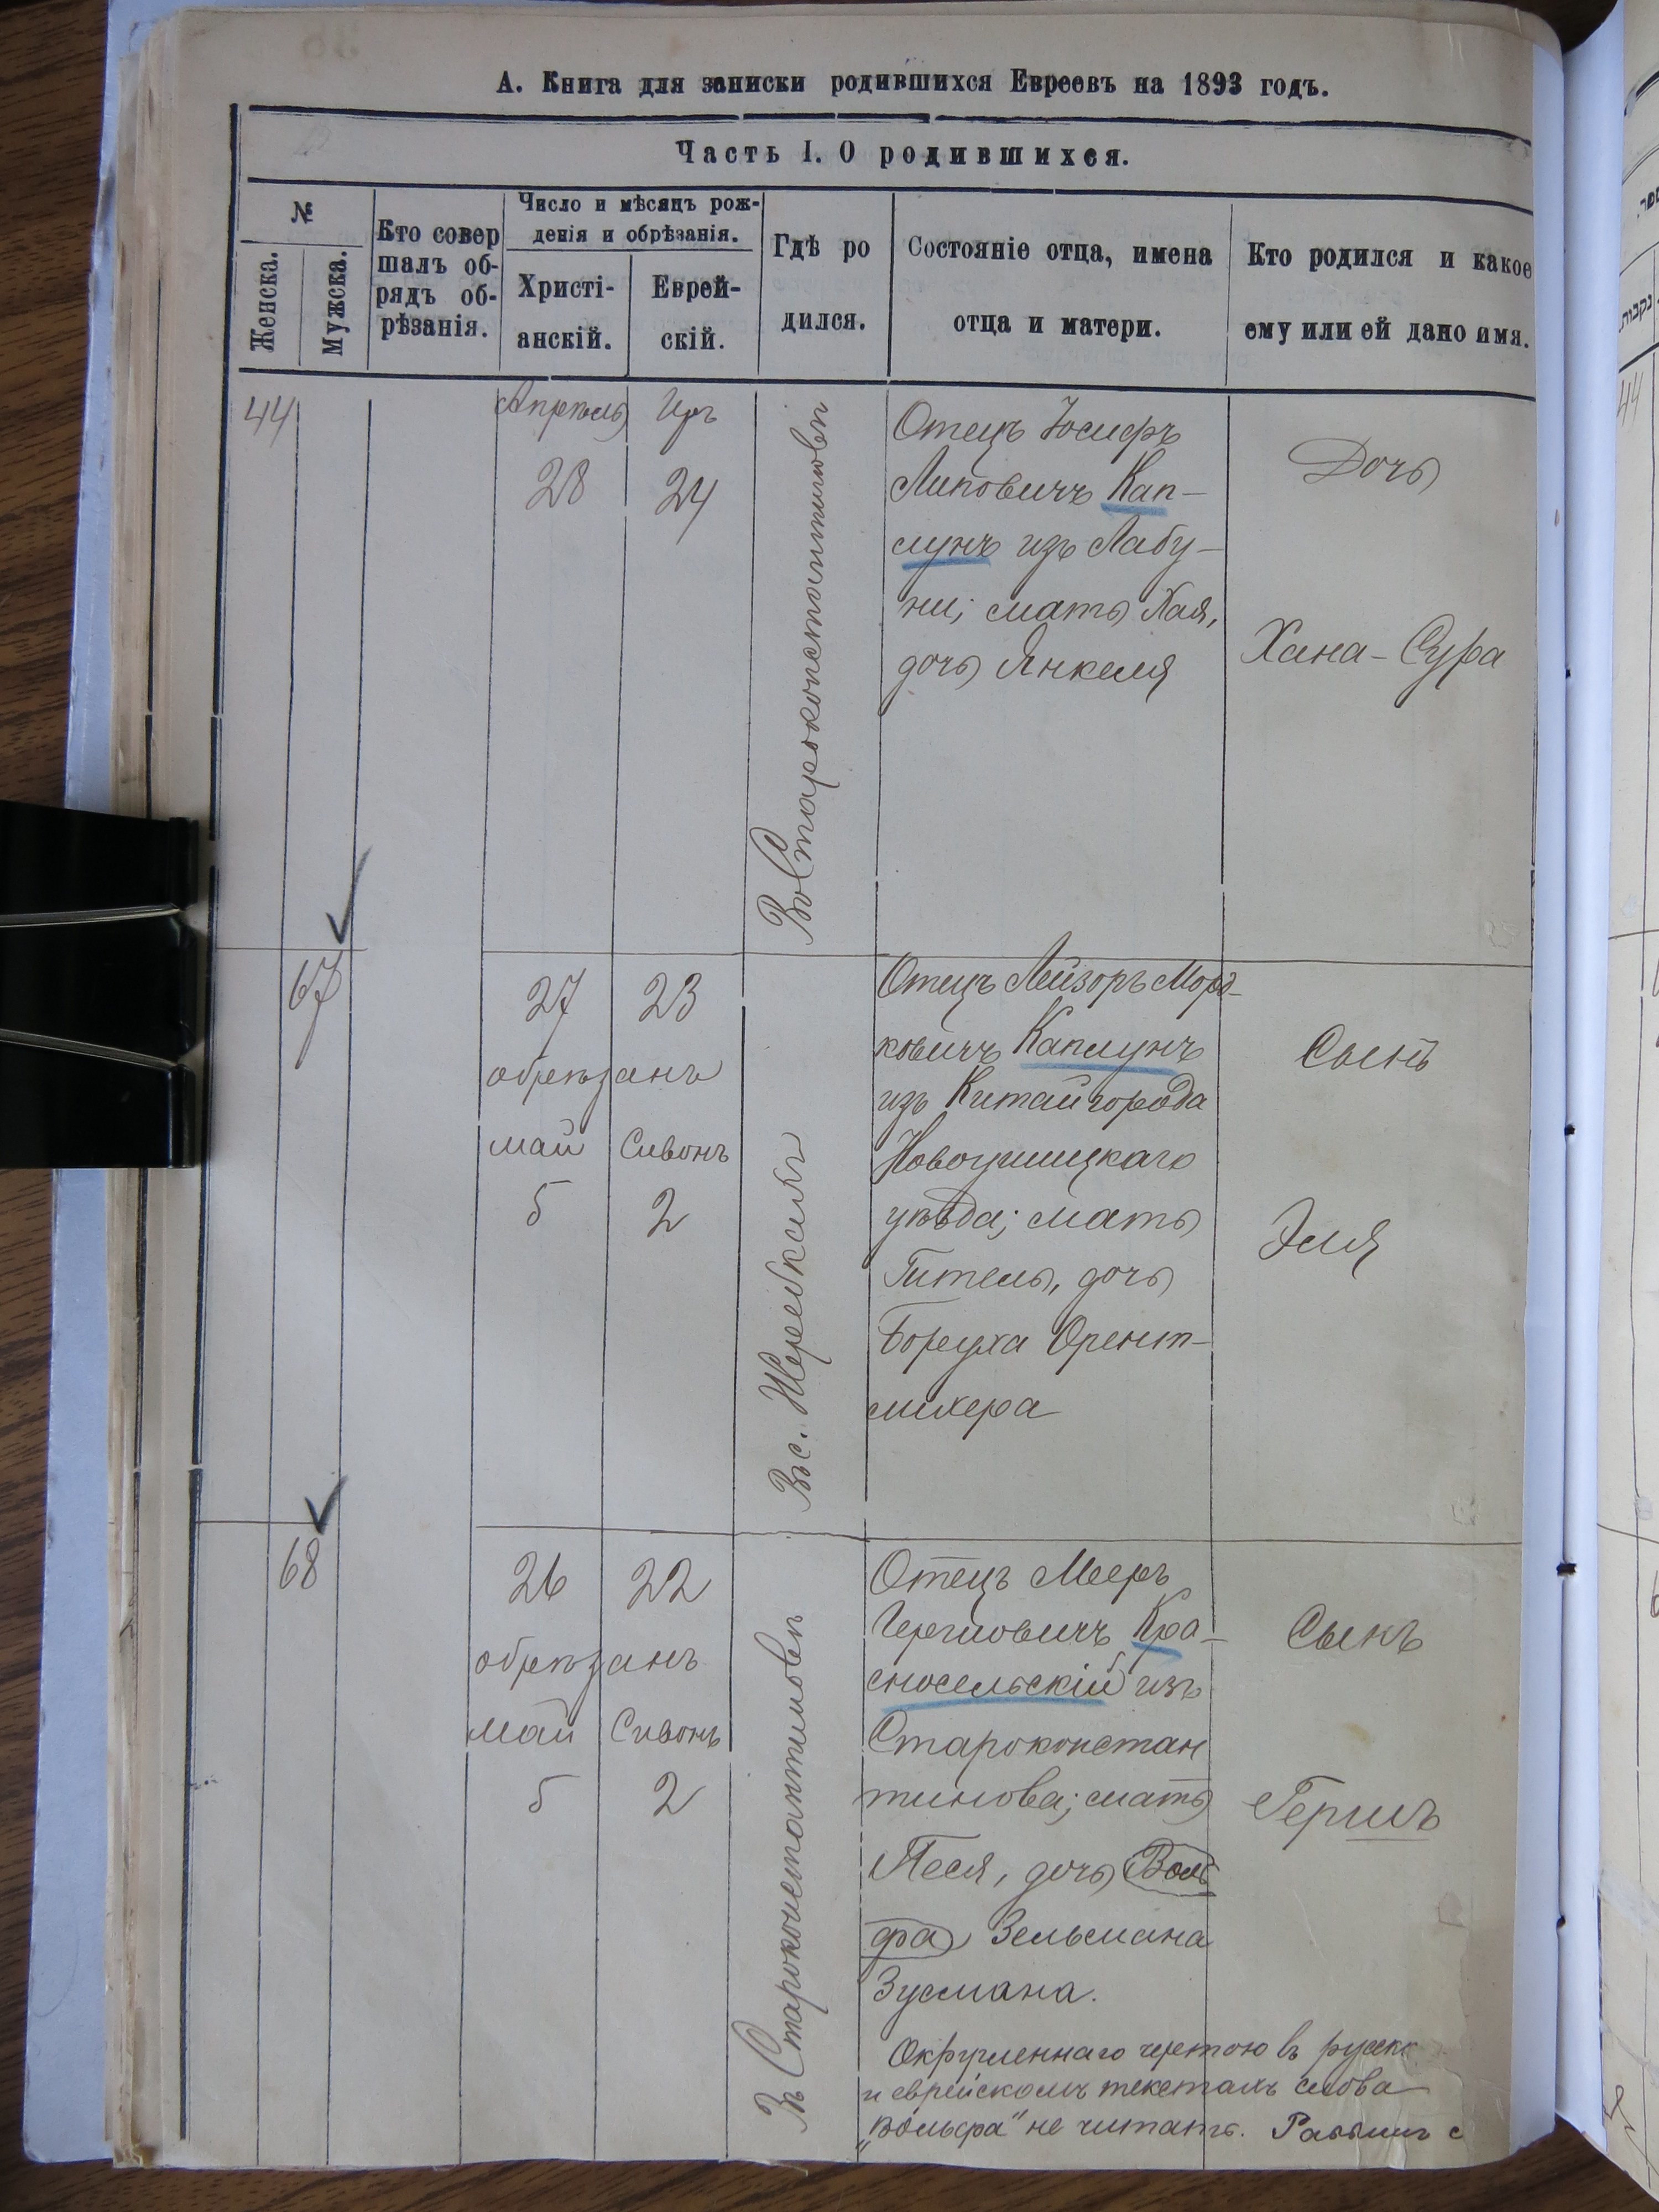 А. Книга для записки родившихся Евреевъ на 1893 годъ.
Часть I. О родившихся.
№
Женска.
Мужска.
Кто совер
шалъ об-
рядъ об-
рѣзанія.
Число и мѣсяцъ рож-
денія и обрѣзанія.
Христі-
анскій.
Еврей-
скій.
Гдѣ ро
дился.
Состояніе отца, имена
отца и матери.
Кто родился и какое
ему или ей дано имя.
44
Апрѣль
28
Иръ
24
Въ Староконстантиновѣ
Отецъ Іосифъ
Липовичъ Кап-
лунъ изъ Лабу-
ни; мать Хая,
дочь Янкеля
Дочь
Хана-Сура
67
27
23
обрѣзанъ
май
Сивонъ
5
2
Въ с. Жеребкахъ
Отецъ Лейзоръ Морд-
ковичъ Каплунъ
изъ Китайгорода
Новоушицкаго
уѣзда; мать
Гитель, дочь
Боруха Орент-
лихера
Сынъ
Эля
68
26
22
обрѣзанъ
май
Сивонъ
5
2
Въ Староконстантиновѣ
Отецъ Мееръ
Гершовичъ Кра-
сносельскій изъ
Староконстан
тинова; мать
Песя, дочь Воль
фа Зельмана
Зусмана.
Сынъ
Гершъ
Округленнаго чертою въ русско
и еврейскомъ текстахъ слова
„Вольфа" не читать. Раввинъ С